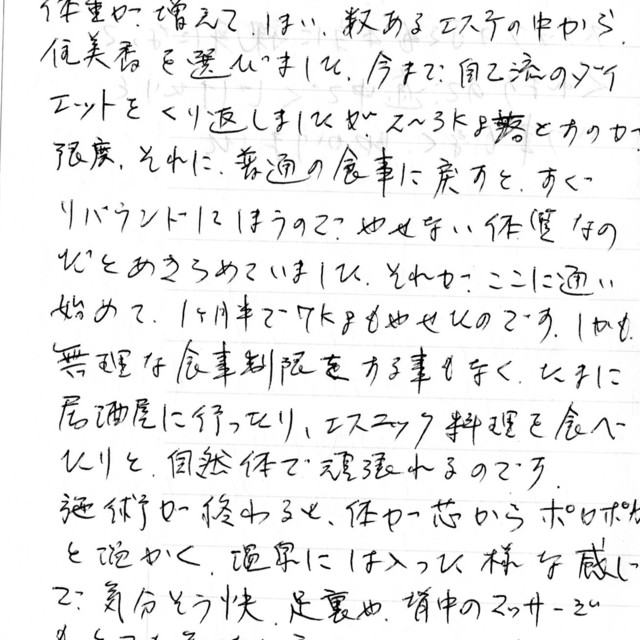 体重が増えてしまい、数あるエステの中から
佳美香を選びました。今まで自己流のダイ
エットをくり返しましたが、2〜3kg落とすのが
限度、それに、普通の食事に戻すと、すぐ
リバウンドしてしまうので、やせない体質なの
だとあきらめていました。それが、ここに通い
始めて、1ヶ月半で7kgもやせたのです。しかも、
無理な食事制限をする事もなく、たまに
居酒屋に行ったり、エスニック料理を食べ
たりと、自然体で頑張れるのです。
施術が終わると、体が芯からポカポカ
と温かく、温泉には入った様な感じ
で、気分そう快、足裏や、背中のマッサージ